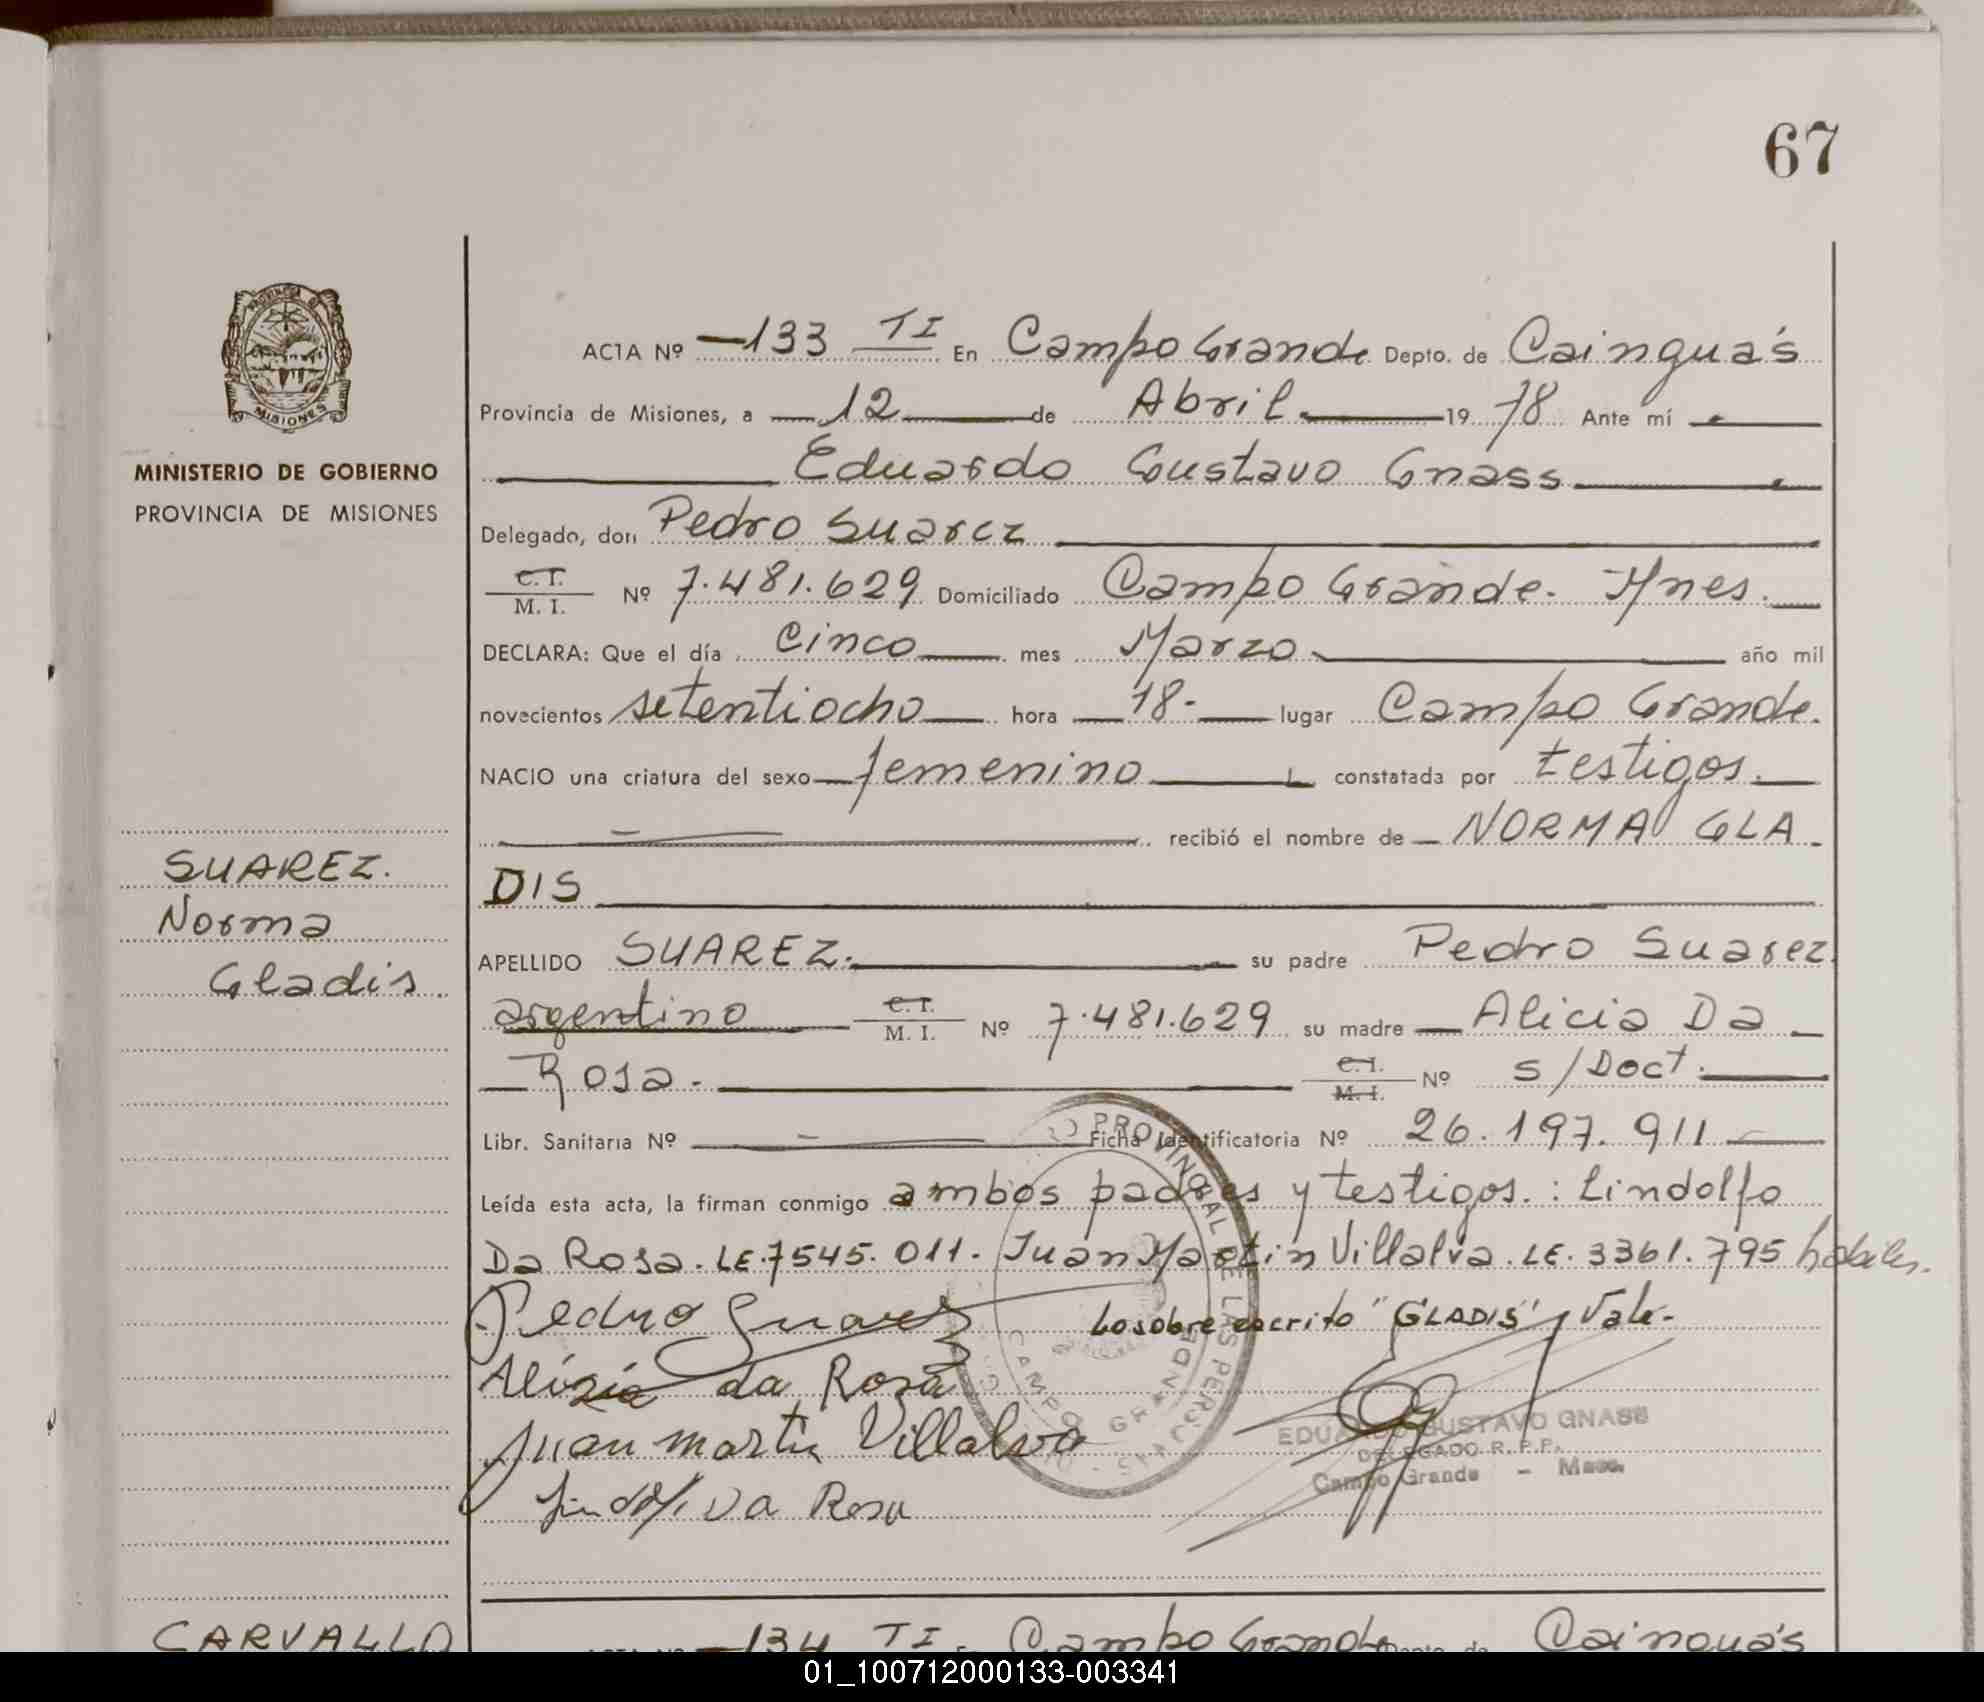 67
PROVINCIA DE
MISIONES
MINISTERIO DE GOBIERNO
PROVINCIA DE MISIONES
SUAREZ.
Norma
Gladis.
ACTA Nº 133 TI En Campo Grande Depto. de Cainguá's
Provincia de Misiones, a 12 de Abril 19 78 Ante mí
Eduardo Gustavo Gnass
Delegado, don Pedro Suarez
C.I. M. I. Nº 7.481.629 Domiciliado Campo Grande. Mnes.
DECLARA: Que el día Cinco mes Marzo año mil
novecientos setentiocho hora 18. lugar Campo Grande.
NACIO una criatura del sexo femenino constatada por testigos.
recibió el nombre de NORMA GLA
DIS
APELLIDO SUAREZ. su padre Pedro Suarez
argentino C.I. M. I. Nº 7.481.629 su madre Alicia Da
Rosa. C.I. M. I. Nº s/Doct.
Libr. Sanitaria Nº Ficha Identificatoria Nº 26.197.911
Leída esta acta, la firman conmigo ambos padres y testigos.: Lindolfo
Da Rosa. LE.7545.011. Juan Martin Villalva. LE. 3361.795 habiles.
Pedro Suarez Lo sobre escrito "GLADIS" Vale-
Alisia da Rosa
Juan martin Villalva
Da Rosa
PROVINCIAL DE LAS PERSONAS
CAMPO GRANDE
EDUARDO GUSTAVO GNASS
DELEGADO R.P.P.
Campo Grande - Mnes.
CARVALLO
ACTA Nº 134 TI En Campo Grande Depto. de Cainguá's
01_100712000133-003341